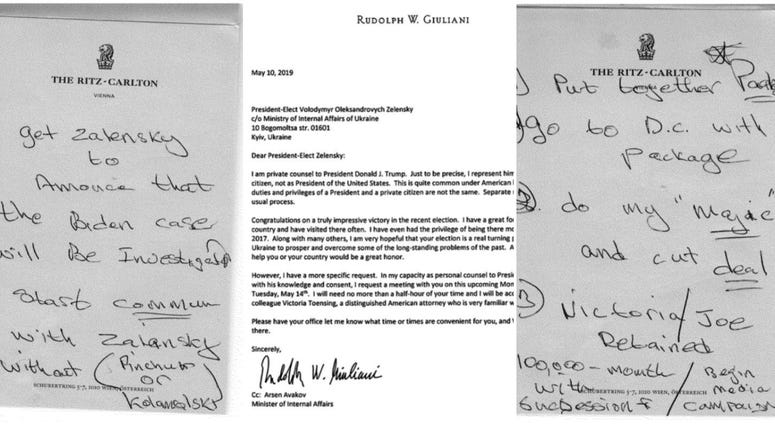 THE RITZ-CARLTON
VIENNA
get Zalensky
to
Annouce that
the Biden case
will Be Investigated
Start commun
with Zalensky
without (Pinchuk
or
SCHUBERTRING 5-7, 1010 WIEN, ÖSTERREICH
Kolamolski
RUDOLPH W. GIULIANI
May 10, 2019
President-Elect Volodymyr Oleksandrovych Zelensky
c/o Ministry of Internal Affairs of Ukraine
10 Bogomoltsa str. 01601
Kyiv, Ukraine
Dear President-Elect Zelensky:
I am private counsel to President Donald J. Trump. Just to be precise, I represent him
citizen, not as President of the United States. This is quite common under American
duties and privileges of a President and a private citizen are not the same. Separate
usual process.
Congratulations on a truly impressive victory in the recent election. I have a great fo
country and have visited there often. I have even had the privilege of being there mo
2017. Along with many others, I am very hopeful that your election is a real turning
Ukraine to prosper and overcome some of the long-standing problems of the past. A
help you or your country would be a great honor.
However, I have a more specific request. In my capacity as personal counsel to Presi
with his knowledge and consent, I request a meeting with you on this upcoming Mon
Tuesday, May 14th. I will need no more than a half-hour of your time and I will be acc
colleague Victoria Toensing, a distinguished American attorney who is very familiar w
Please have your office let me know what time or times are convenient for you, and
there.
Sincerely,
Rudolph W. Giuliani
Cc: Arsen Avakov
Minister of Internal Affairs
THE RITZ-CARLTON
) Put together
go to D.C. with
package
do my "magic"
and cut deal
3) Victoria/Joe
Retained
100,000 - month / Begin
with / media
SCHUBERTRING 5-7, 1010 WIEN, ÖSTERREICH
/ campaign